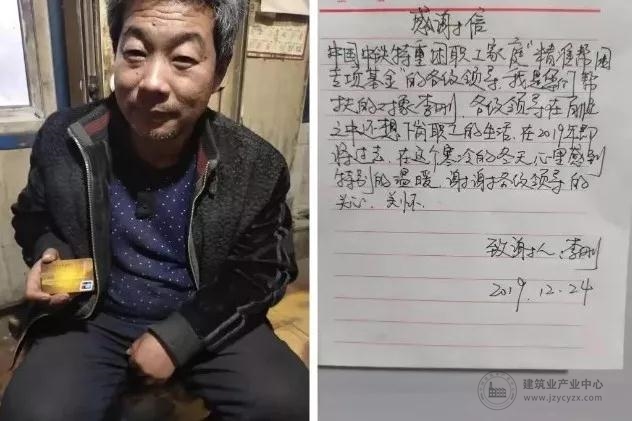 感谢信
中国中铁特重困职工家庭“精准帮困
专项基金”的各位领导，我是你们帮
扶的对象李刚，各位领导在百忙
之中还想下岗职工的生活，在2019年即
将过去，在这个寒冷的冬天心里感到
特别的温暖，谢谢各位领导的
关心、关怀.
致谢人：李刚
2019.12.24
建筑业产业中心
www.jzycyzx.com